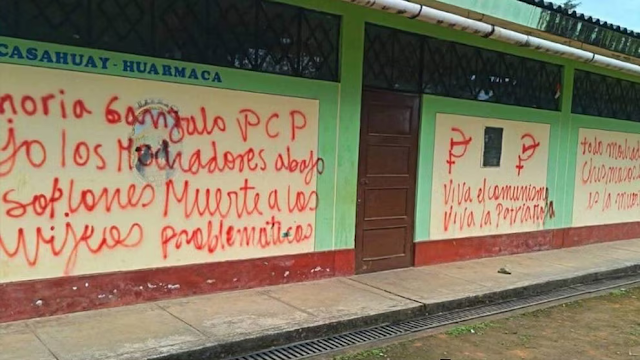 CASAHUAY - HUARMACA
moria Gonzalo PCP
jo los Mochadores abajo
soplones Muerte a los
viejos problematicos
Viva el comunismo
viva la Patria
todo mochador
es la muer